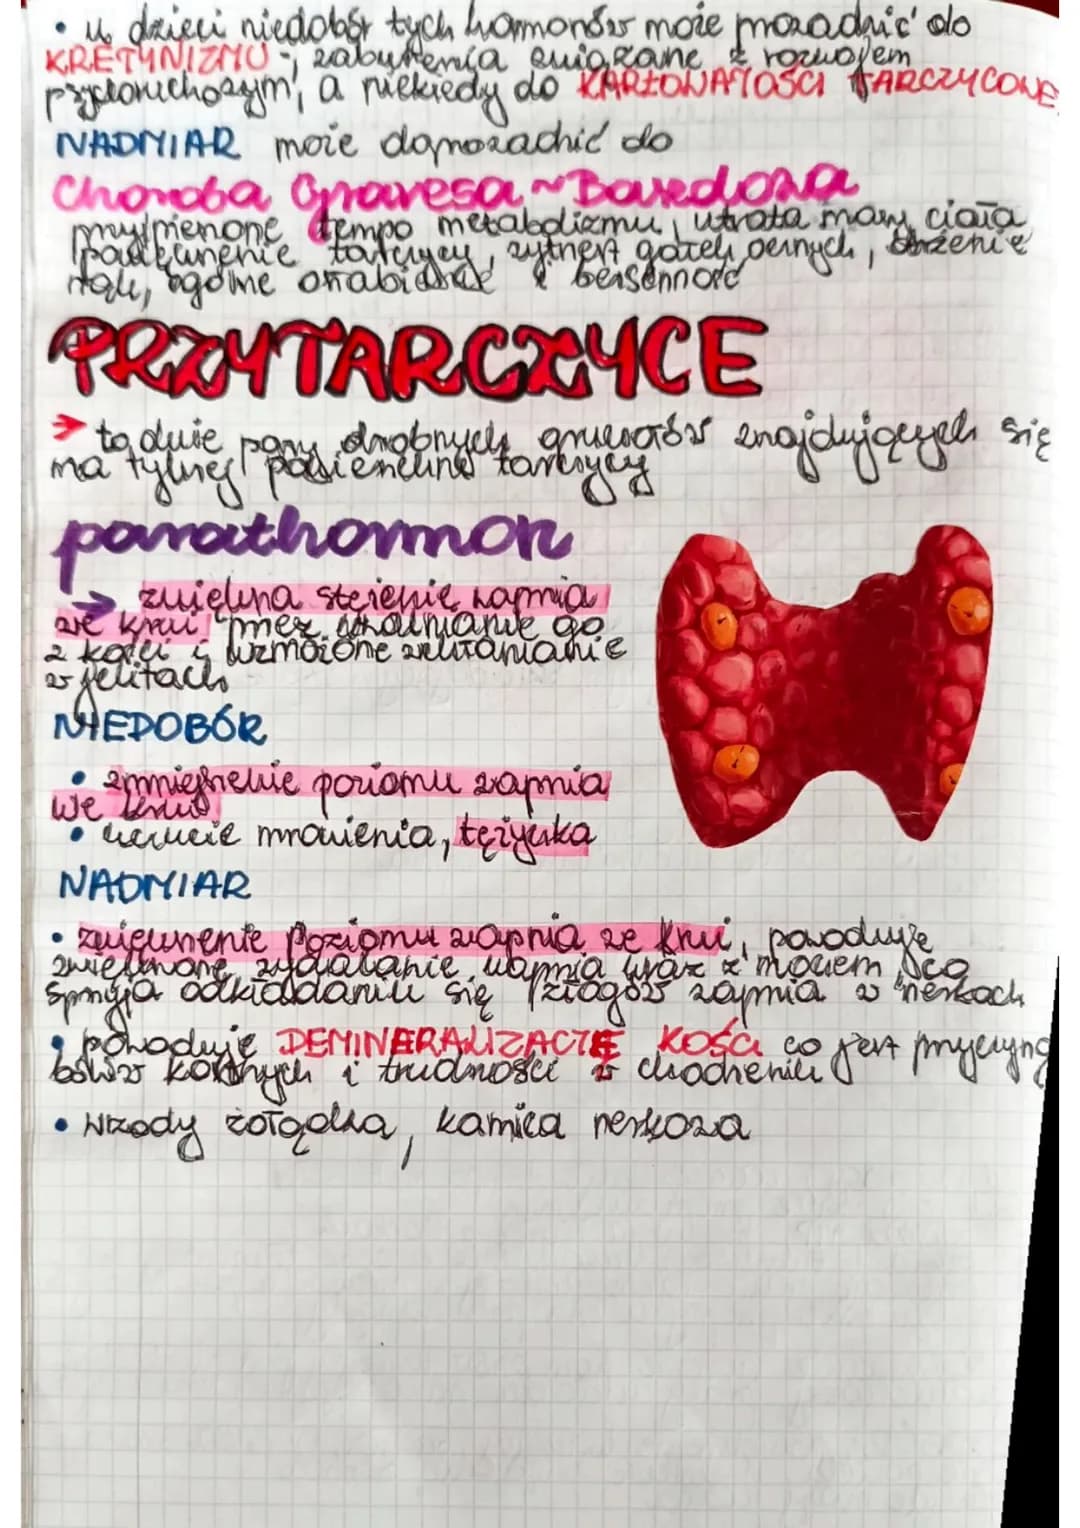 • u dzieci niedobór tych hormonów może prowadzić do
KRETYNIZMU -, zaburzenia związane z rozwojem
psychoruchowym, a niekiedy do KARŁOWATOŚCI TARCZYCOWE
NADMIAR może doprowadzić do
Choroba Gravesa ~ Basedowa
przyspieszone tempo metabolizmu, utrata masy ciała,
powiększenie tarczycy, wytrzeszcz gałek ocznych, drżenie
rąk, ogólne osłabienie i bezsenność
PRZYTARCZYCE
→ to dwie pary drobnych gruczołów znajdujących się
na tylnej powierzchni tarczycy
parathormon
→ zwiększa stężenie wapnia
we krwi, przez uwalnianie go
z kości i wzmożone wchłanianie
w jelitach
NIEDOBÓR
• zmniejszenie poziomu wapnia
we krwi
• uczucie mrowienia, tężyczka
NADMIAR
• zwiększenie poziomu wapnia we krwi, powoduje
zwiększone wydalanie wapnia wraz z moczem, co
sprzyja odkładaniu się złogów wapnia w nerkach
• powoduje DEMINERALIZACJĘ KOŚCI co jest przyczyną
bólów kostnych i trudności w chodzeniu
• wrzody żołądka, kamica nerkowa